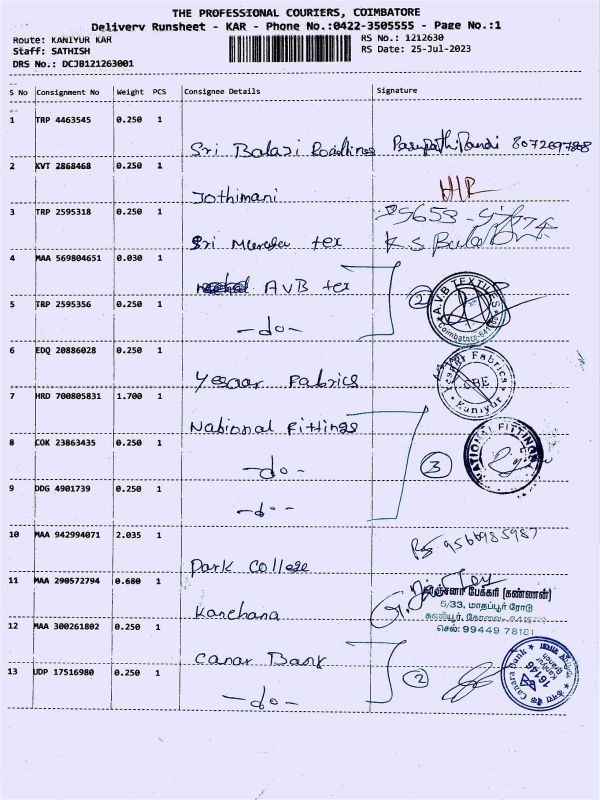 THE PROFESSIONAL COURIERS, COIMBATORE
Delivery Runsheet - KAR - Phone No.:0422-3505555 - Page No.:1
Route: KANIYUR KAR
RS No.: 1212630
Staff: SATHISH
RS Date: 25-Jul-2023
DRS No.: DCJB121263001
S No Consignment No Weight PCS Consignee Details Signature
1 TRP 4463545 0.250 1
Sri Balaji Roadlines 8072697868
2 KVT 2868468 0.250 1
Jothimani
3 TRP 2595318 0.250 1
Sri Muruga tex K.S.
4 MAA 569804651 0.030 1
AVB tex 2 A.V.B TEXTILES Coimbatore
5 TRP 2595356 0.250 1
-do-
6 EDQ 20886028 0.250 1
Yesaar Fabrics Yesaar Fabrics CBE Kaniyur
7 HRD 700805831 1.700 1
National Fittings
8 COK 23863435 0.250 1
-do- 3 NATIONAL FITTINGS
9 DDG 4901739 0.250 1
-do-
10 MAA 942994071 2.035 1
Park College 9566985987
11 MAA 290572794 0.680 1
Kanchana
பேக்கரி (கண்ணன்)
5/33, மாதப்பூர் ரோடு
செல்: 99449 78181
12 MAA 300261802 0.250 1
Canar Bank
13 UDP 17516980 0.250 1
-do- 2 Canara Bank 16146 Kaniyur Branch